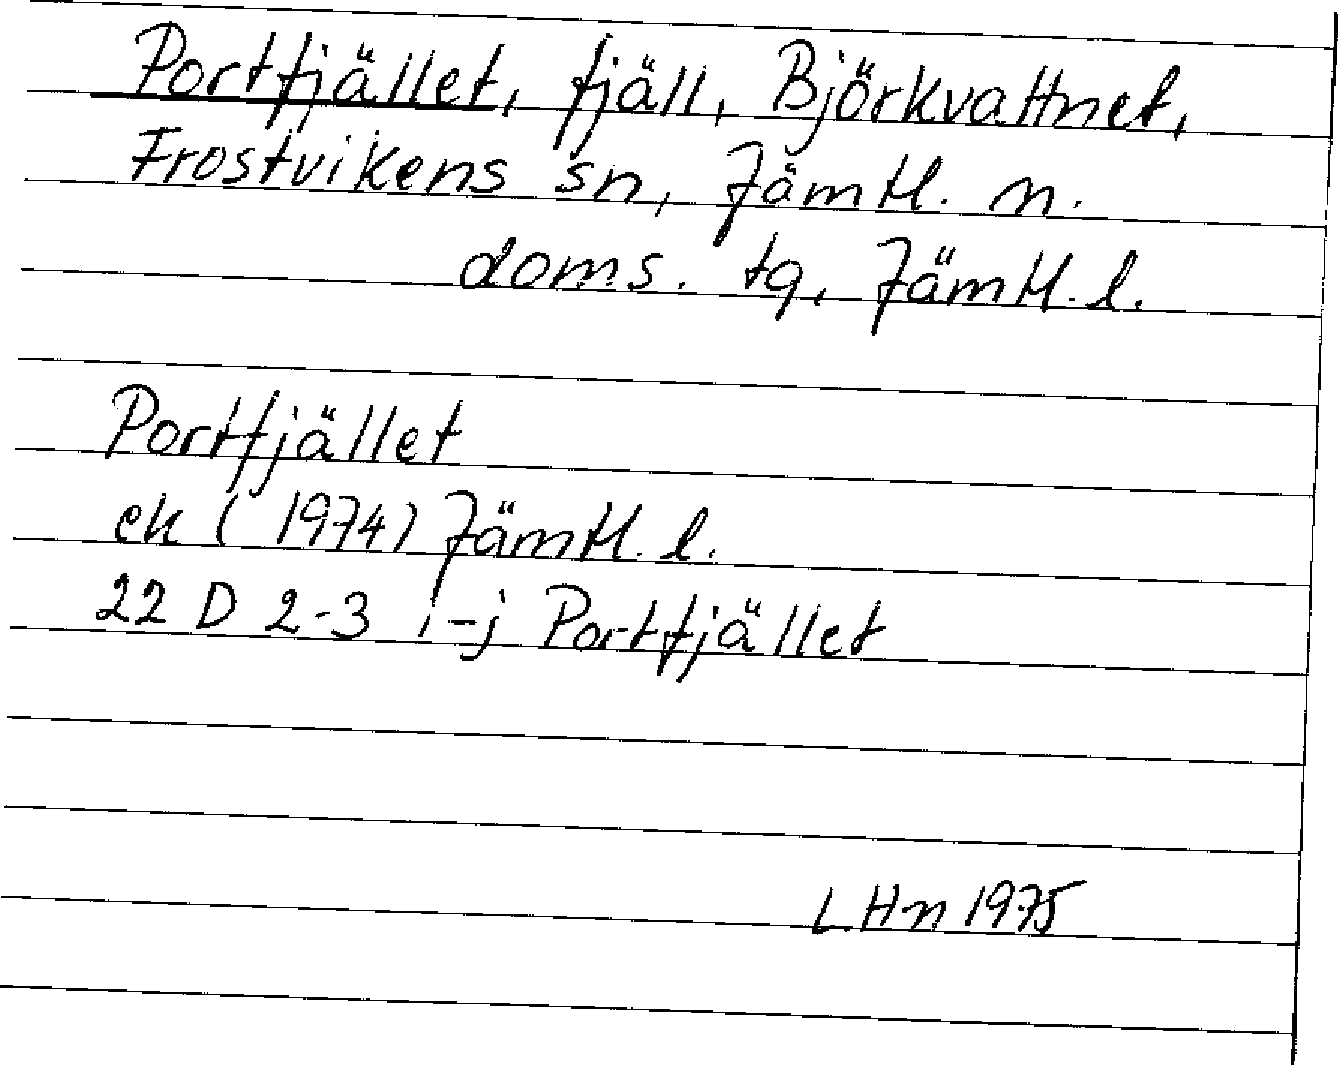 Portfjället, fjäll, Björkvattnet,
Frostvikens sn, Jämtl. n.
doms. tg, Jämtl. l.
Portfjället
ek (1974) Jämtl. l.
22 D 2-3 i-j Portfjället
L.Hn 1975